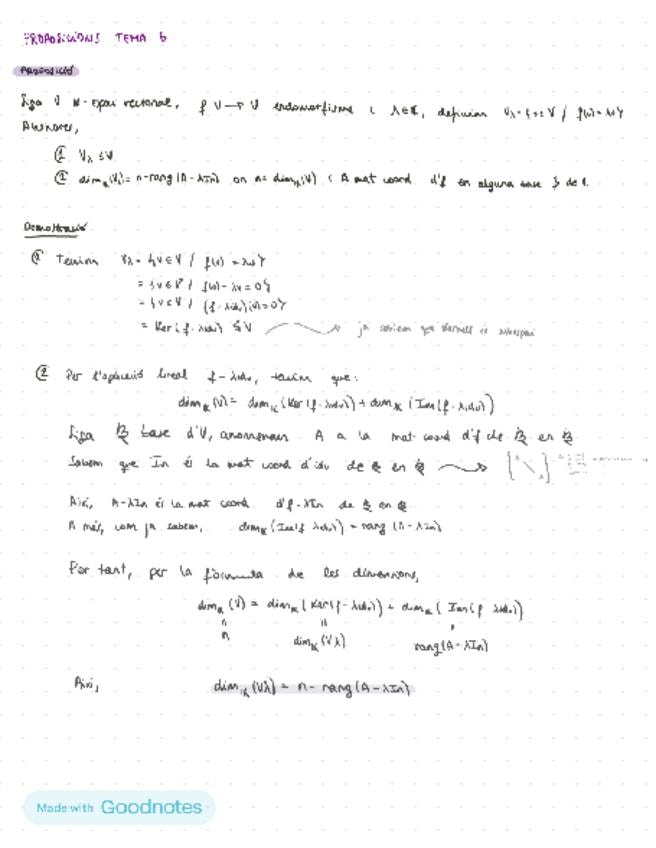 PROPOSICIONS TEMA 6
PROPOSICIÓ
Siga V K-espai vectorial, f V→V endomorfisme i λ∈K, definim Vλ = {v∈V / f(v) = λv}
Aleshores,
① Vλ ≤ V
② dim_K(Vλ) = n-rang(A-λIn) on n = dim_K(V) i A mat coord d'f en alguna base B de V.
Demostració
① Tenim Vλ = {v∈V / f(v) = λv}
= {v∈V / f(v) - λv = 0}
= {v∈V / (f-λid_V)(v) = 0}
= Ker(f-λid_V) ≤ V ja sabíem que
② Per l'aplicació lineal f-λid_V, tenim que:
dim_K(V) = dim_K(Ker(f-λid_V)) + dim_K(Im(f-λid_V))
Siga B base d'V, anomenem A a la mat coord d'f de B en B
Sabem que In és la mat coord d'id_V de B en B
Així, A-λIn és la mat coord d'f-λIn de B en B
A més, com ja sabem, dim_K(Im(f-λid_V)) = rang(A-λIn)
Per tant, per la fórmula de les dimensions,
dim_K(V) = dim_K(Ker(f-λid_V)) + dim_K(Im(f-λid_V))
n dim_K(Vλ) rang(A-λIn)
Així, dim_K(Vλ) = n - rang(A-λIn)
Made with Goodnotes